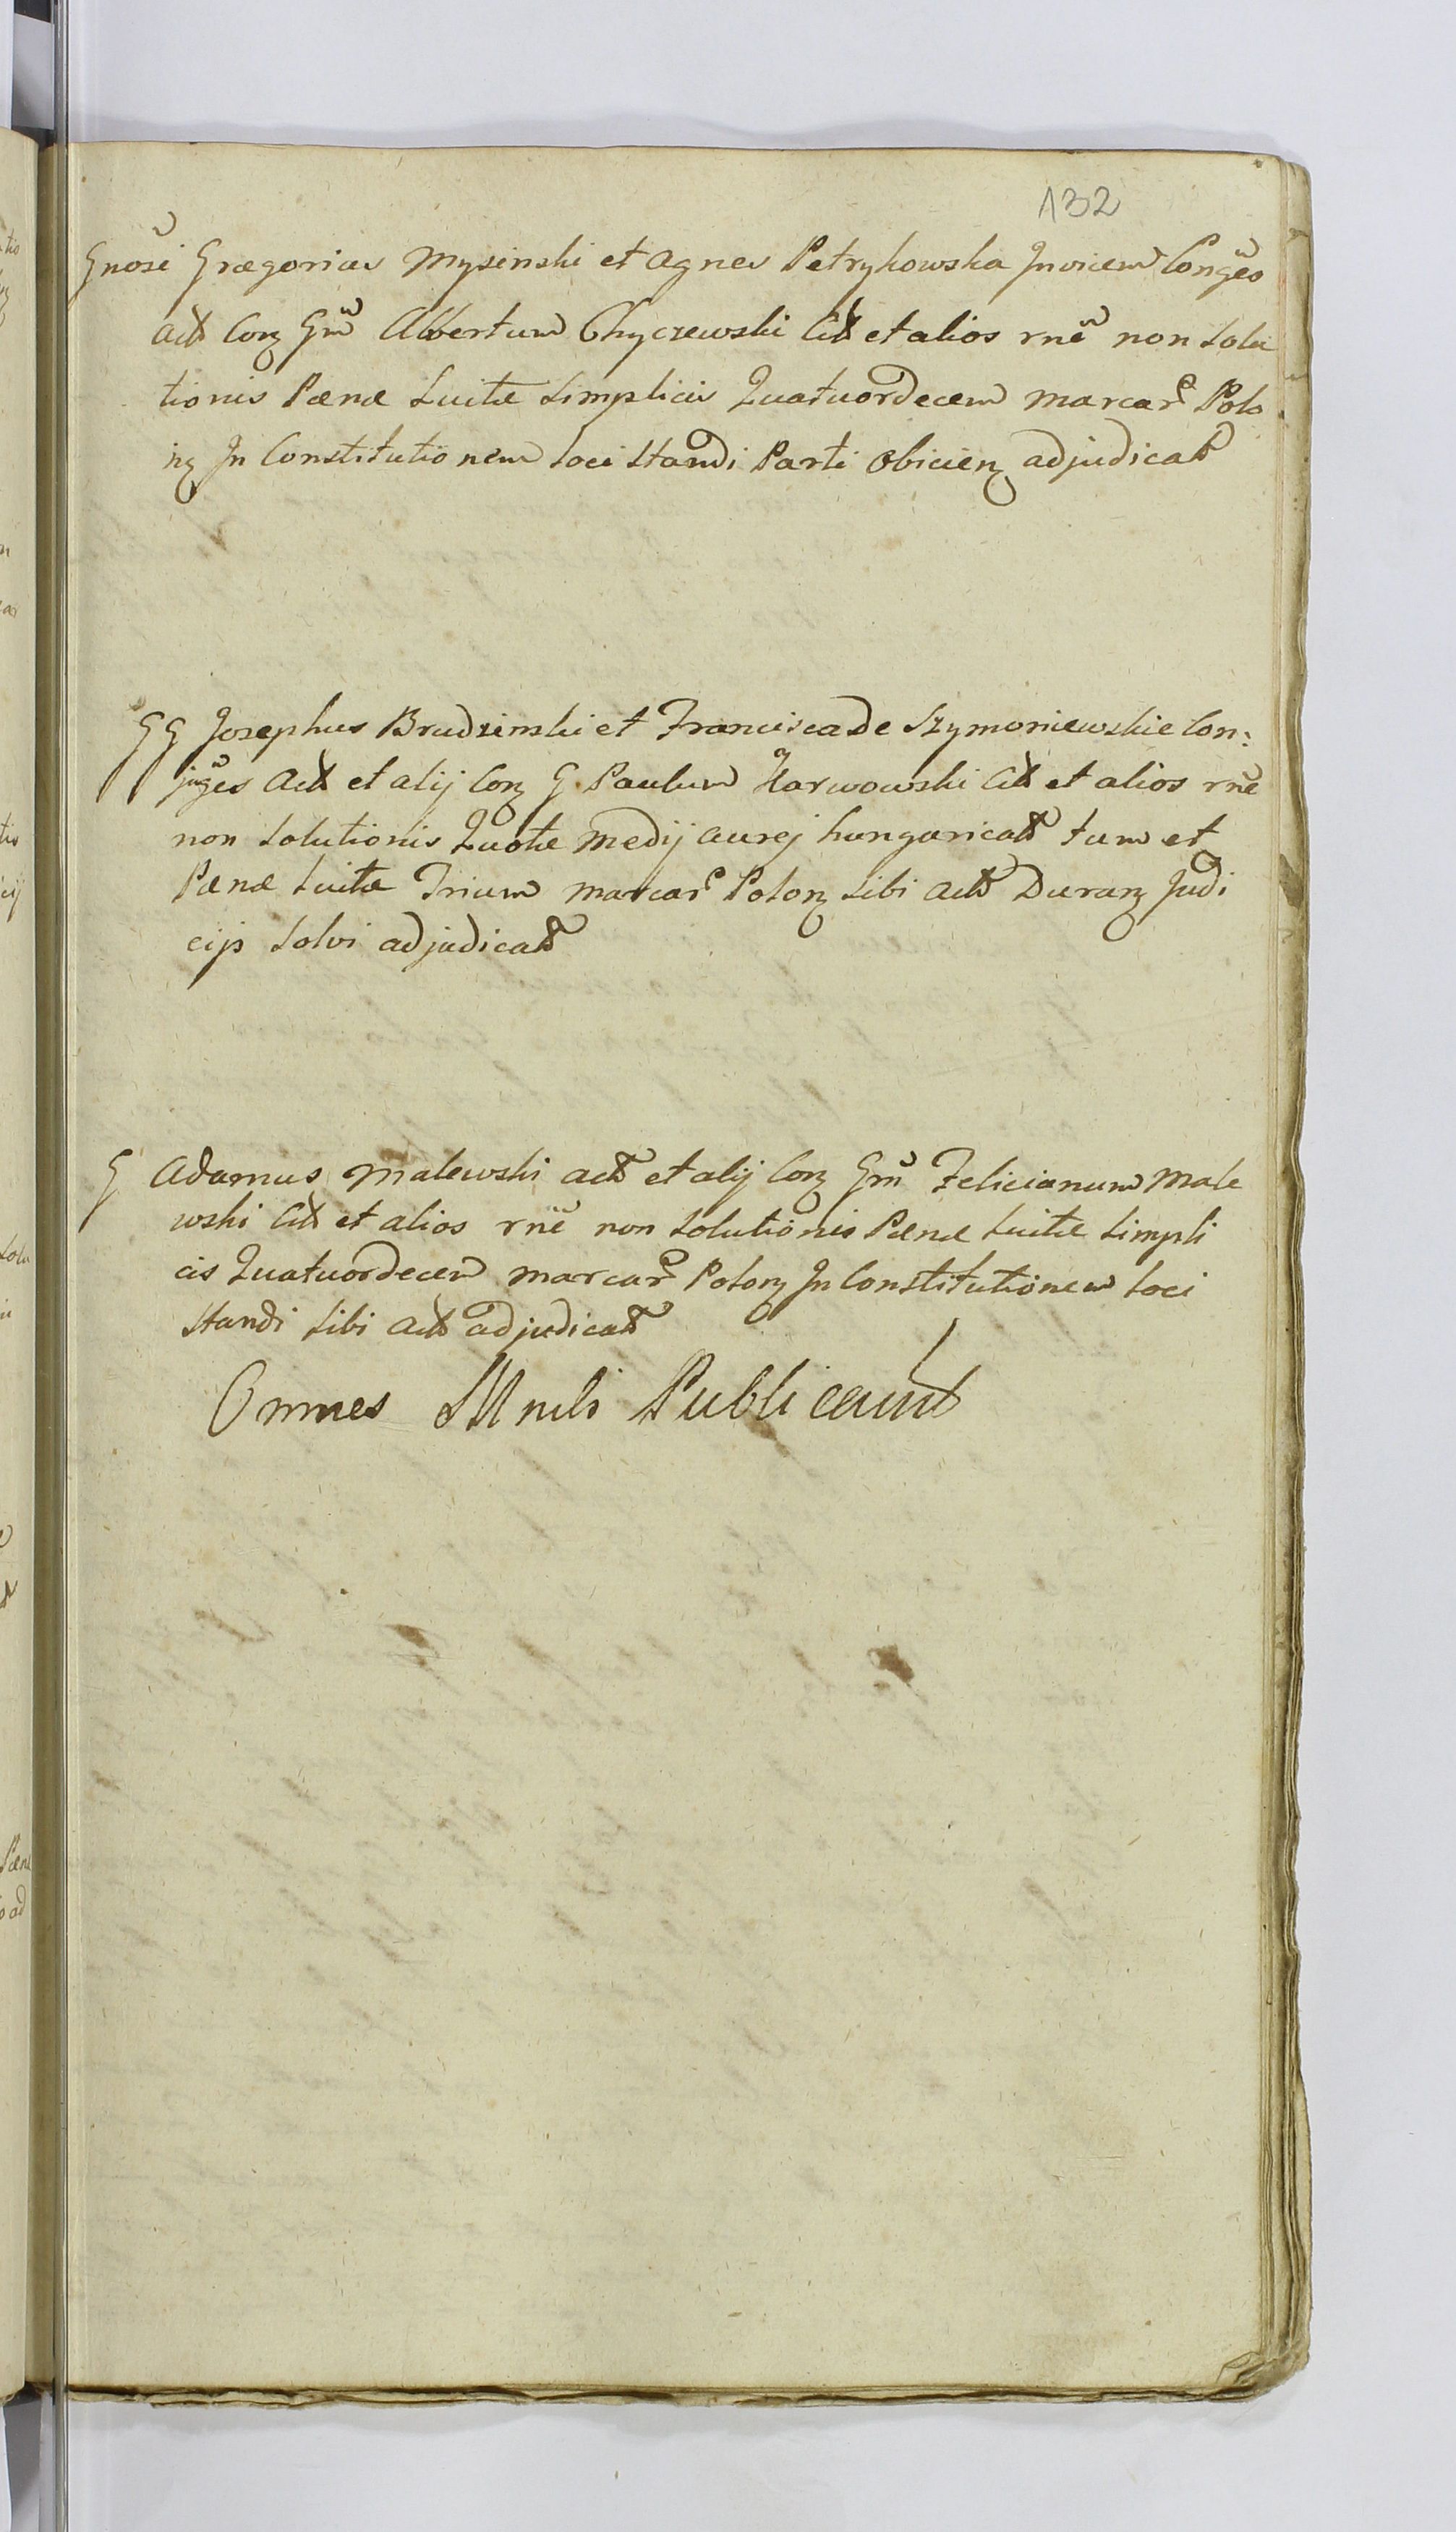 132
Gnosi Gregorius Mysinski et Agnes Petrykowska Invicem Conges
Act Corz Gm Albertum Chyczewski Cit et alios rne non Solu
tionis Pænæ Luitæ Simplicis Quatuordecem Marcar Polo
nz In Constitutionem Loci Standi Parti Obicienz adjudicat
GG Josephus Brudzinski et Francisca de Szymoniewskie Con:
juges Act et alij Corz G Paulum Karwowski Cit et alios rne
non Solutionis Quotæ Medij aurej hungaricat tum et
Pænæ Luitæ Trium Marcar Polonz Sibi Act Duranz Judi
cijs Solvi adjudicat
G Adamus Malewski Act et alij Corz Gm Felicianum Male
wski Cit et alios rne non Solutionis Pænæ Luitæ Simpli
cis Quatuordecem Marcar Polonz In Constitutionem Loci
Standi Sibi Act adjudicat
Omnes Publicaunt